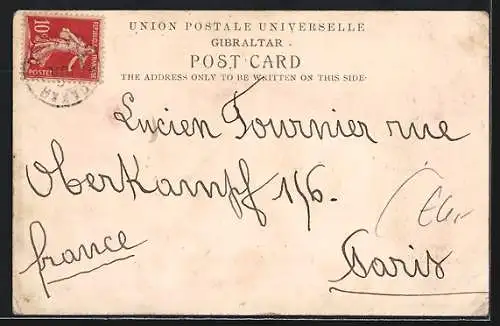 UNION POSTALE UNIVERSELLE
GIBRALTAR.
POST CARD
THE ADDRESS ONLY TO BE WRITTEN ON THIS SIDE.
10c
POSTES
Lucien Fournier rue
OberKampf 156.
france
Paris